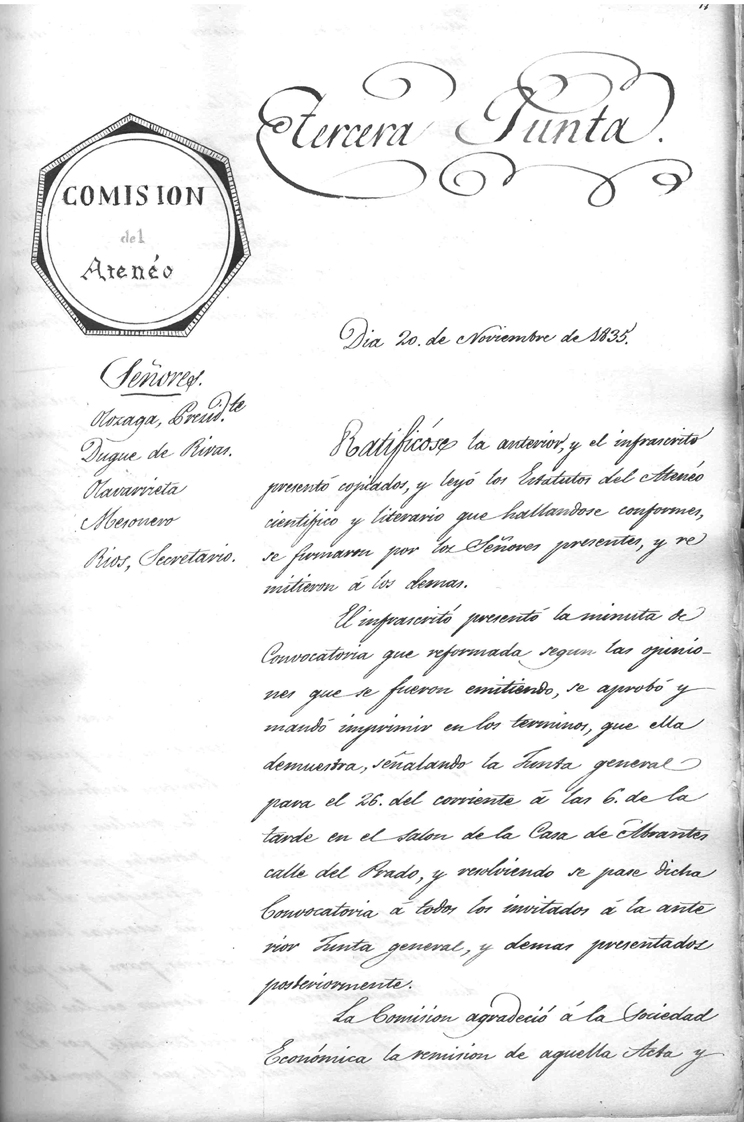 tercera Junta.
COMISION
del
Atenéo
Dia 20. de Noviembre de 1835.
Señores.
Olozaga, Presid.te
Duque de Rivas.
Olavarrieta
Mesonero
Rios, Secretario.
Ratificóse la anterior, y el infrascrito
presentó copiados, y leyó los Estatutos del Atenéo
cientifico y literario que hallandose conformes,
se firmaron por los Señores presentes, y re
mitieron á los demas.
El infrascritó presentó la minuta de
Convocatoria que reformada segun las opinio-
nes que se fueron emitiendo, se aprobó y
mandó imprimir en los terminos, que ella
demuestra, señalando la Junta general
para el 26. del corriente á las 6. de la
tarde en el salon de la Casa de Abrantes
calle del Prado, y resolviendo se pase dicha
Convocatoria á todos los invitados á la ante
rior Junta general, y demas presentados
posteriormente.
La Comision agradeció á la Sociedad
Económica la remision de aquella Acta y